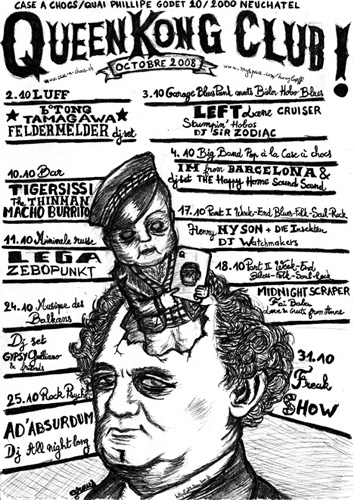 CASE A CHOCS/QUAI PHILLIPE GODET 20/2000 NEUCHATEL
QUEEN KONG CLUB!
OCTOBRE 2008
2.10 LUFF
TAMAGAWA
FELDERMELDER dj set
3.10 Garage Blues Punk meets Bieln Hobo Blues
LEFT Lane CRUISER
Stumpin' Hobos
DJ SIR ZODIAC
4.10 Big Band Pop à la Case à chocs
I'M from BARCELONA &
dj set THE Happy Home Sound Sound
10.10 Bar
TIGERSISSI
The THINMAN
MACHO BURRITO
11.10 Minimale russe
LEGA
ZEBOPUNKT
17.10 Part I Week-End Blues-Folk-Soul-Rock
Henry NYSON + DIE Insekten
DJ Watchmakers
18.10 Part II Week-End
Blues-Folk-Soul-Rock
MIDNIGHT SCRAPER
24.10 Musique des
Balkans
Dj set
GYPSY Galliano
& friends
25.10 Rock Psyché
AD'ABSURDUM
Dj All night long
31.10
Freak
SHOW